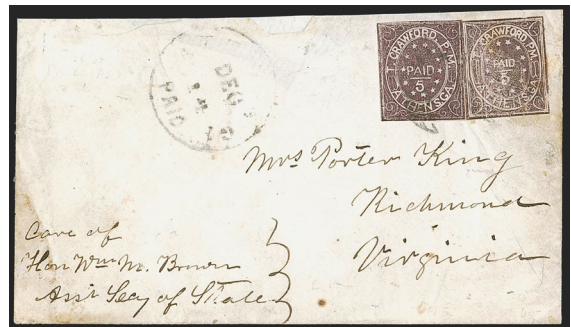 CRAWFORD, P.M.
PAID
5
ATHENS, GA.
CRAWFORD, P.M.
PAID
5
ATHENS, GA.
DEC
PAID
Mrs Porter King
Richmond
Virginia
Care of
Hon Wm M. Brown
Asst Secy of State